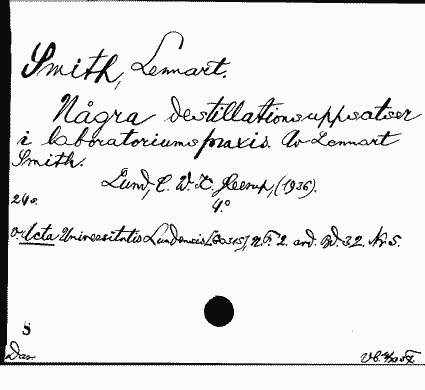 Smith, Lennart.
Några destillationsuppsatser
i laboratoriumspraxis. Av Lennart
Smith.
Lund, C. W. K. Gleerup, (1936).
4:o
24 s.
Acta Universitatis Lundensis N. F. 2. avd. Bd. 32. Nr 5.
S